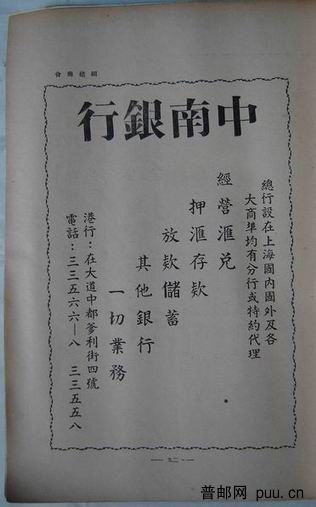 中南銀行
總行設在上海國內國外及各
大商埠均有分行或特約代理
經營滙兌
押滙存欵
放欵儲蓄
其他銀行
一切業務。
港行：在大道中都爹利街四號
電話：三三五六六—八 三三五五八
普邮网 puu.cn